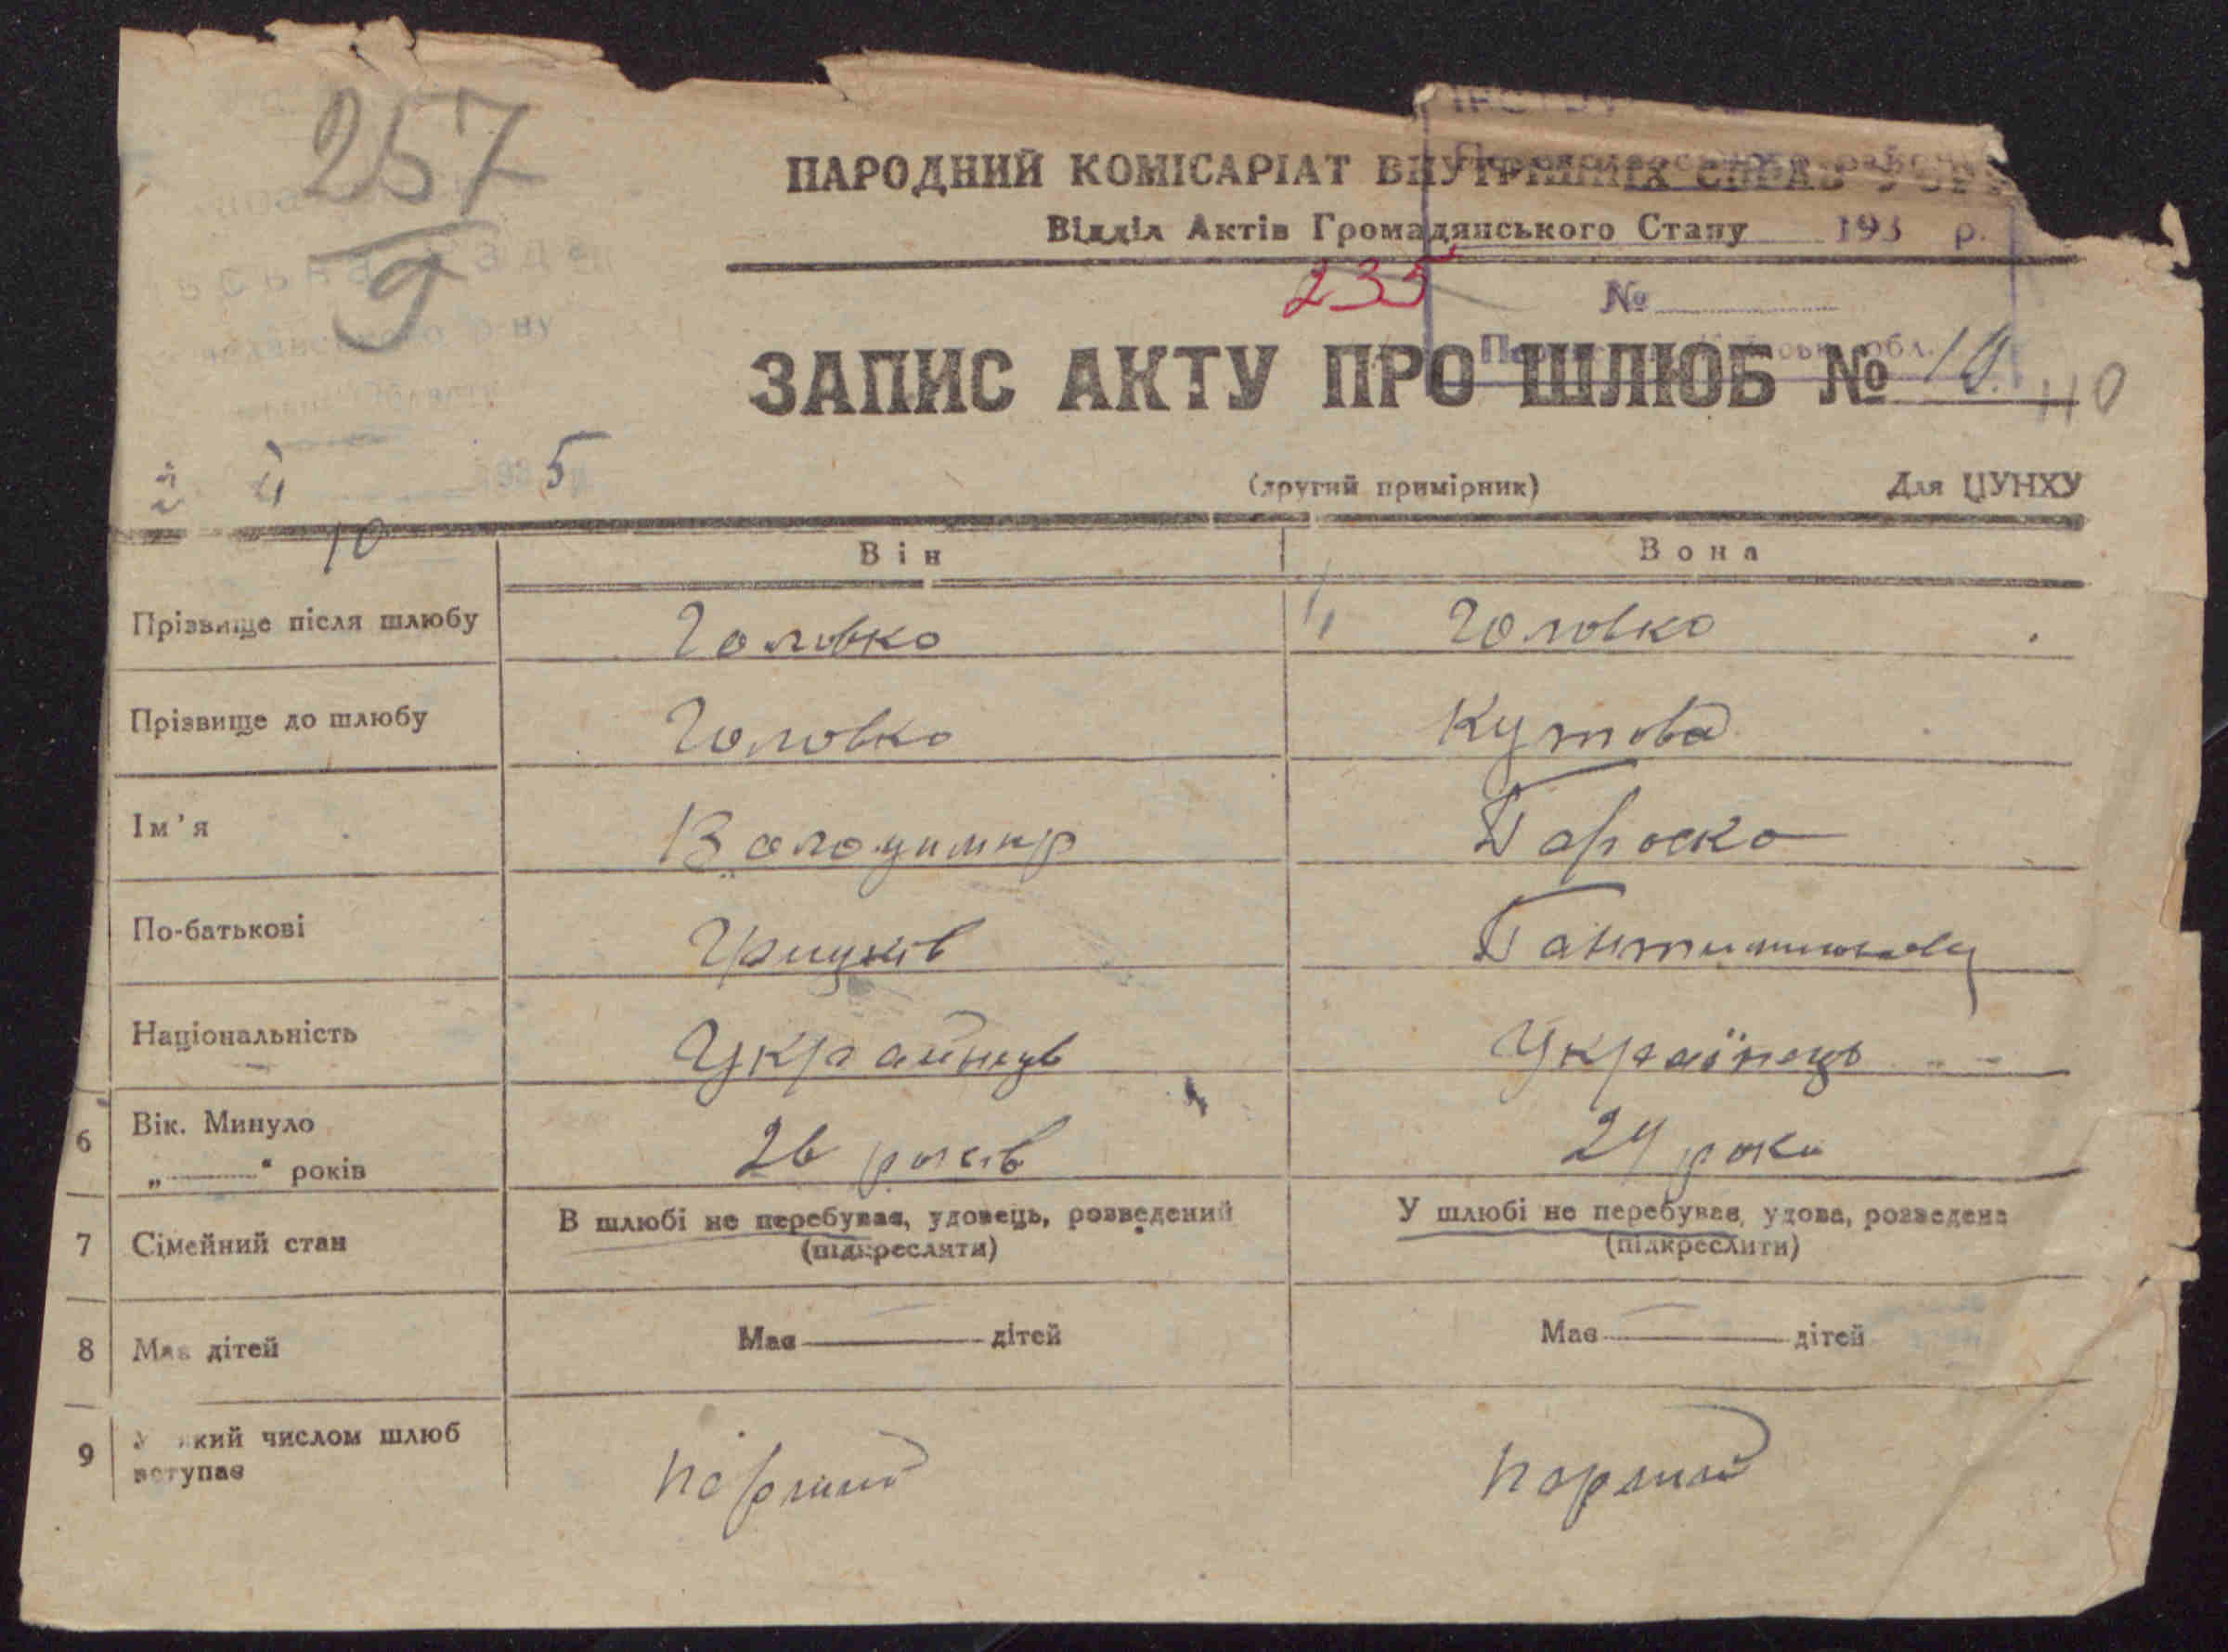 257
9
НАРОДНИЙ КОМІСАРІАТ ВНУТРІШНІХ СПРАВ
Відділ Актів Громадянського Стану 193 р.
235
№
ЗАПИС АКТУ ПРО ШЛЮБ № 10.
110
5
(другий примірник) Для ЦУНХУ
10
Він Вона
Прізвище після шлюбу Головко Головко
Прізвище до шлюбу Головко Кутова
Ім'я Володимир
По-батькові
Національність Украйнець Україннець
6 Вік. Минуло
„ “ років 26 років 24 роки
7 Сімейний стан В шлюбі не перебував, удовець, розведений У шлюбі не перебував, удова, розведена
(підкреслити) (підкреслити)
8 Має дітей Має дітей Має дітей
9 який числом шлюб
вступає
перший перший